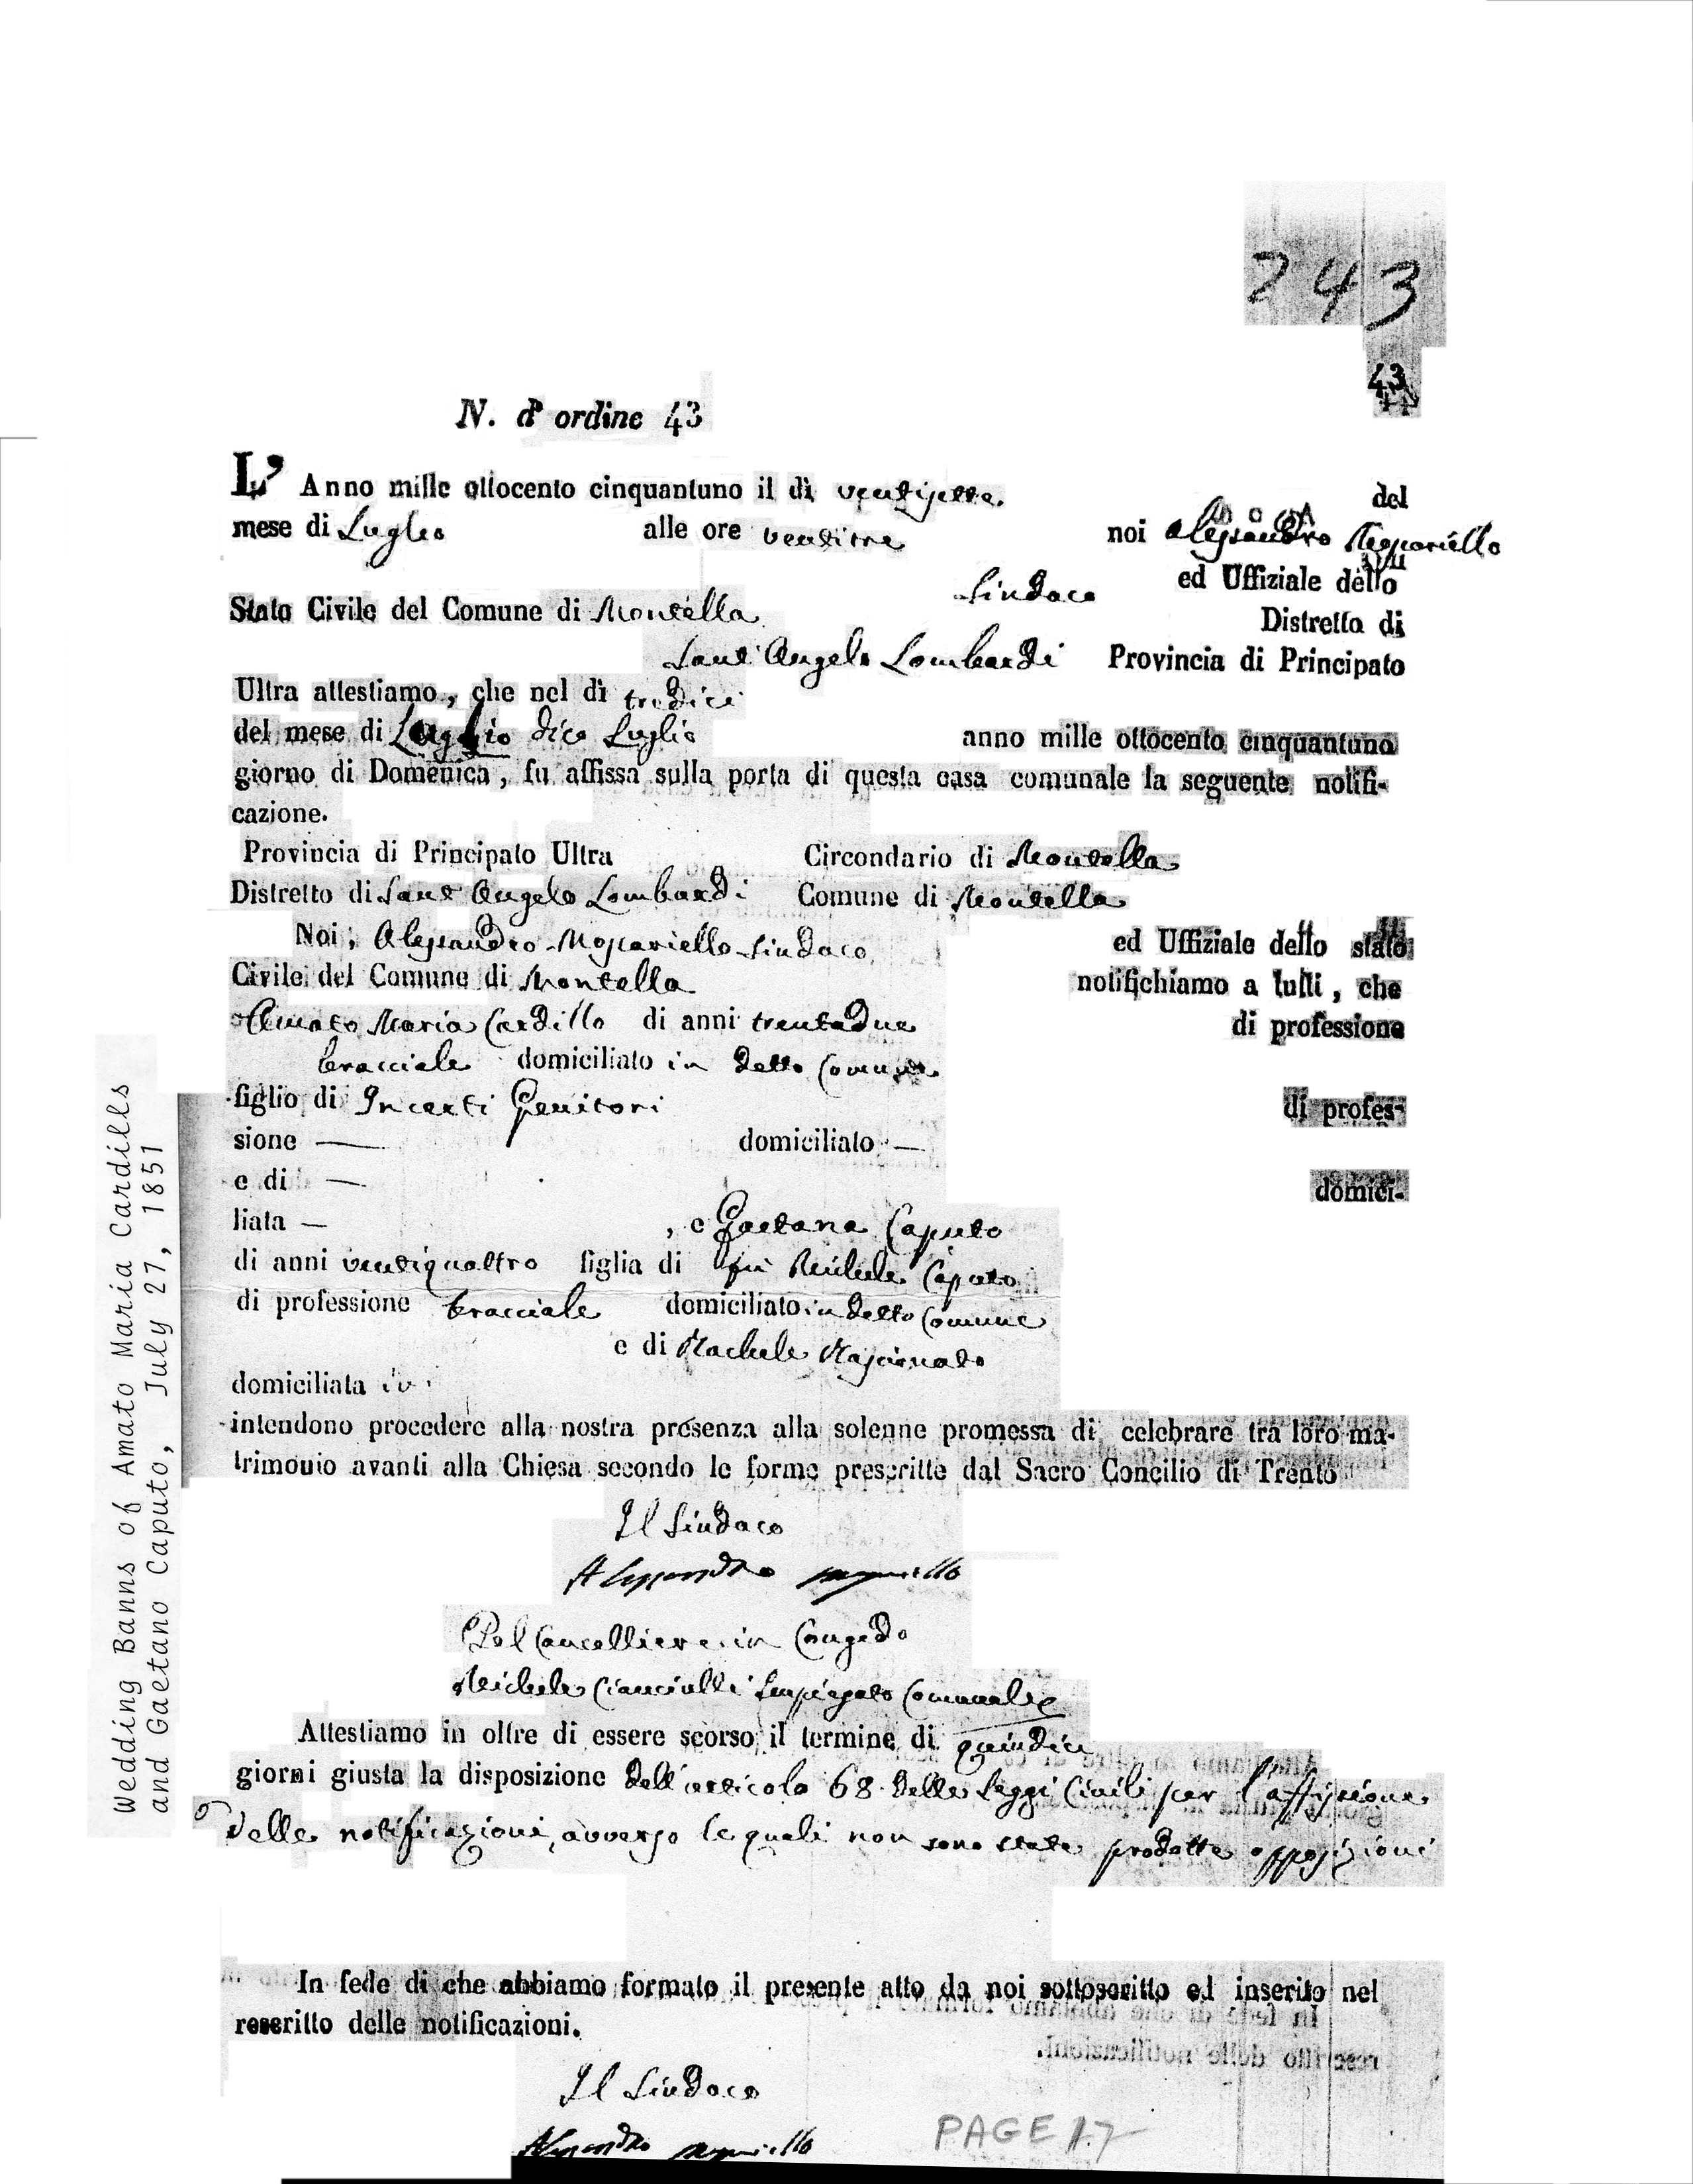 243
43
N. d' ordine 43
L' Anno mille ottocento cinquantuno il dì ventisette. del
mese di Luglio alle ore ventitre noi Alessandro Moscariello
Sindaco ed Uffiziale dello
Stato Civile del Comune di Montella Distretto di
Sant' Angelo Lombardi Provincia di Principato
Ultra attestiamo, che nel dì tredici
del mese di Luglio dico Luglio anno mille ottocento cinquantuno
giorno di Domenica, fu affissa sulla porta di questa casa comunale la seguente notifi-
cazione.
Provincia di Principato Ultra Circondario di Montella
Distretto di Sant Angelo Lombardi Comune di Montella
Noi, Alessandro Moscariello Sindaco ed Uffiziale dello stato
Civile del Comune di Montella notifichiamo a tutti, che
Amato Maria Cardillo di anni trentadue di professione
bracciale domiciliato in detto Comune
figlio di Incerti Genitori di profes-
sione — domiciliato —
e di — domici-
liata — , e Gaetana Caputo
di anni ventiquattro figlia di fu Michele Caputo
di professione bracciale domiciliato in detto Comune
e di Rachele
domiciliata ivi
intendono procedere alla nostra presenza alla solenne promessa di celebrare tra loro ma-
trimonio avanti alla Chiesa secondo le forme prescritte dal Sacro Concilio di Trento
Il Sindaco
Alessandro Moscariello
Pel Cancelliere in Congedo
Michele Cianciulli Impiegato Comunale
Attestiamo in oltre di essere scorso il termine di quindici
giorni giusta la disposizione dell'articolo 68 delle Leggi Civili per l'affissione
delle notificazioni, avverso le quali non sono state prodotte opposizioni
In fede di che abbiamo formato il presente atto da noi sottoscritto ed inserito nel
rescritto delle notificazioni.
Il Sindaco
Alessandro Moscariello
PAGE 17
Wedding Banns of Amato Maria Cardills
and Gaetano Caputo, July 27, 1851